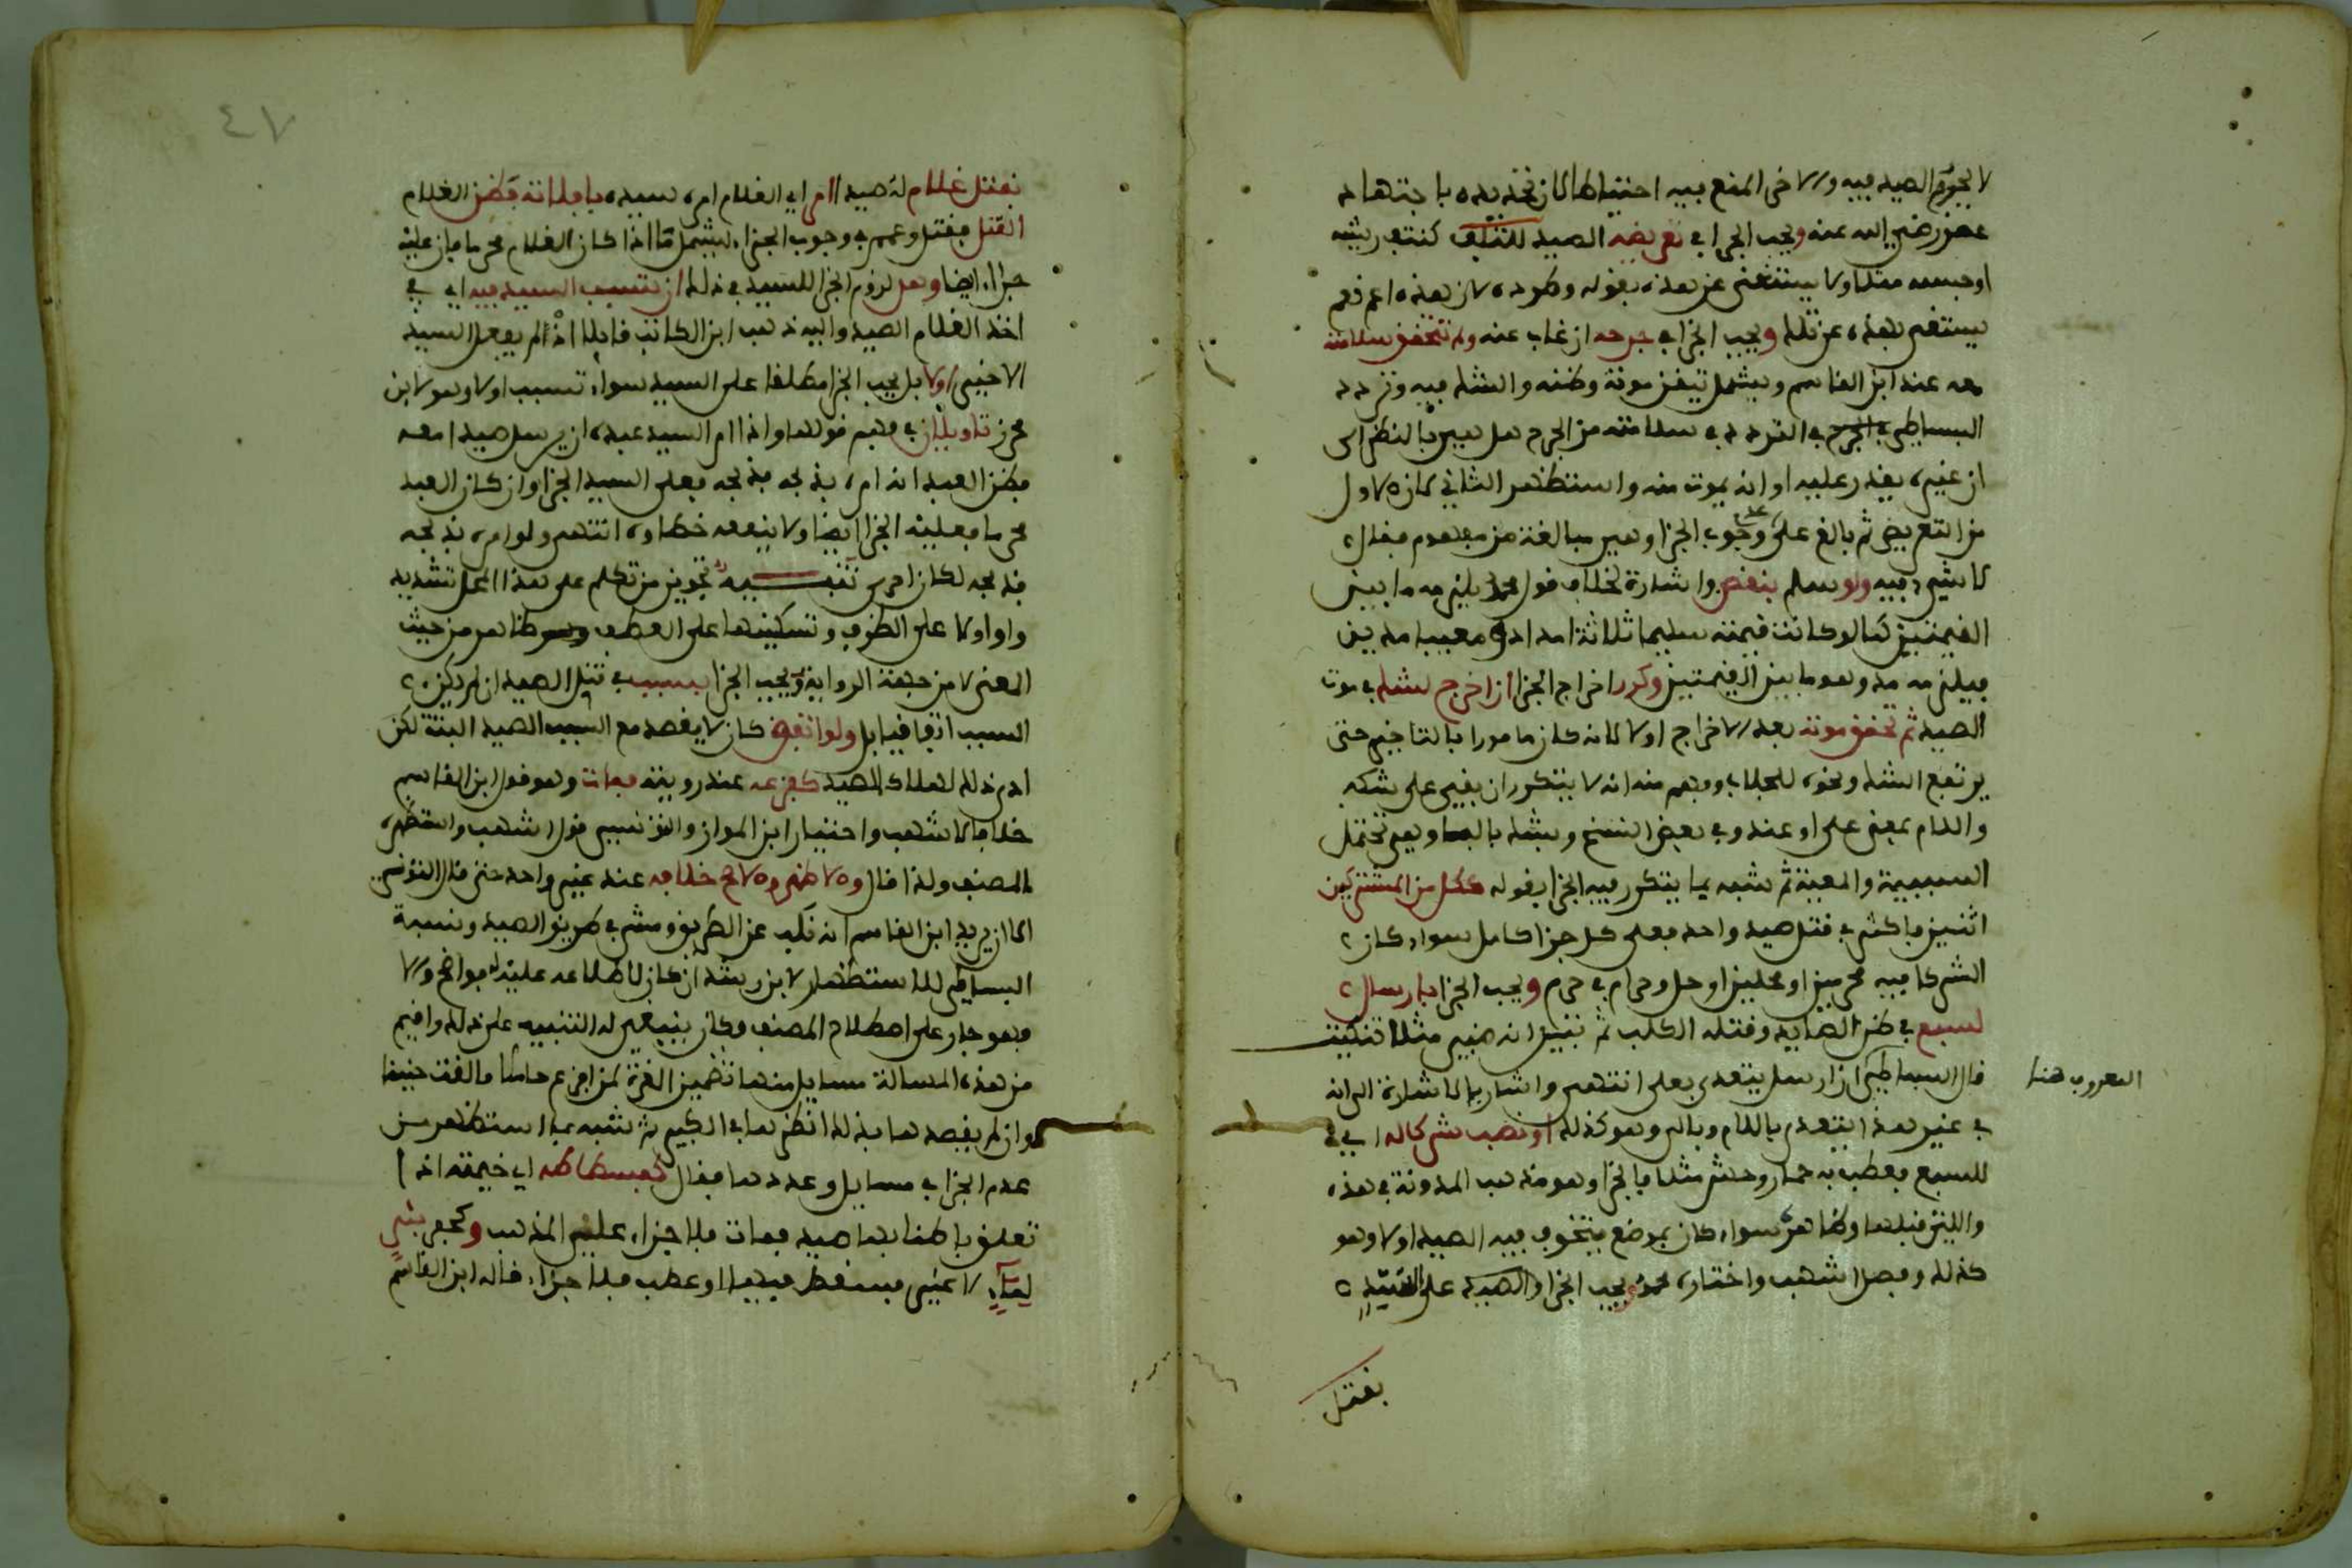 لا يجوز الصيد فيه والاخرى المنع فيه احتياطا لان تحديده باجتهاد
عمر رضي الله عنه ويجب الجزا في تعريضه الصيد للتلف كنتف ريشه
او حبسه مثلا ولا يستغنى عن هذه بقوله وطرده لان هذه اعم نعم
يستغنى بهذه عن تلك ويجب الجزا في جرحه ان غاب عنه ولم تتحقق سلامته
معه عند ابن القاسم ويشمل تيقن موته وظنه والشك فيه وتردد
البساطي في الجرح في التردد في سلامته من الجرح هل هي بالنظر الى
ان غيره يقدر عليه او انه يموت منه واستظهر الثاني لان الاول
من التعريض ثم بالغ على وجوب الجزا وهي مبالغة من مفهوم فقال
لا شيء فيه ولو سلم بنقص واشارة لخلاف قول محمد يلزمه ما بين
القيمتين كما لو كانت قيمته سليما ثلاثة امداد ومعيبا مدين
فيلزمه مد وهو ما بين القيمتين وكرر اخراج الجزا ان اخرج لشك في موت
الصيد ثم تحقق موته بعد الاخراج اولا لانه كان مامورا بالتاخير حتى
يرتفع الشك ونحوه للجلاب وفهم منه انه لا يتكرر ان بقي على شكه
واللام بمعنى على او عند وفي بعض النسخ وبشك بالباء وهي تحتمل
السببية والمعية ثم شبه بما يتكرر فيه الجزا بقوله ككل من المشتركين
اثنين فاكثر في قتل صيد واحد فعلى كل جزا كامل سواء كان
الشركا فيه محرمين او محلين او حل وحرام في حرم ويجب الجزا بارسال
لسبع في ظن الصايد وقتله الكلب ثم تبين انه ضبي مثلا تنكيت
قال البساطي ان ارسل يتعدى بعلى انتهى واشار بالاشارة الى انه
المعروف هنا
في غير هذا يتعدى باللام وبالى وهو كذلك او نصب شرك له اي
للسبع فعطب به حمار وحش مثلا فالجزا وهو مذهب المدونة في هذه
والتي قبلها وظاهره سواء كان بموضع يتخوف فيه الصيد اولا وهو
كذلك وفصل اشهب واختاره محمد ويجب الجزا والصيد على السيد
بقتل
٤٧
بقتل غلام له صيدا امر اي الغلام امره سيده بافلاته فظن الغلام
القتل فقتل وعمم في وجوب الجزاء ليشمل ما اذا كان الغلام محرما فان عليه
جزاء ايضا وهل لزوم الجزا للسيد في ذلك ان تسبب السيد فيه اي في
اخذ الغلام الصيد واليه ذهب ابن الكاتب قايلا اذا لم يفعل السيد
الا خيرا اولا بل يجب الجزا مطلقا على السيد سواء تسبب اولا وهو لابن
محرز تاويلان في فهم قولها واذا امر السيد عبده ان يرسل صيدا معه
فظن العبد انه امره بذبحه فذبحه فعلى السيد الجزا وان كان العبد
محرما فعليه الجزا ايضا ولا ينفعه خطاوه انتهى ولو امره بذبحه
فذبحه لكان احرى تنبيه تجويز من تكلم على هذا المحل تشديد
واو اولا على الظرف وتسكينها على العطف ظاهر من حيث
المعنى لا من جهة الرواية ويجب الجزا بسبب في قتل الصيد ان لم يكن
السبب اتفاقيا بل ولو اتفق كان لا يقصد مع السبب الصيد البتة لكن
ادى ذلك لهلاك الصيد كفزعه عند رويته فمات وهو قول ابن القاسم
خلافا لاشهب واختيار ابن المواز والتونسي قول اشهب واستظهره
المصنف ولذا قال والاظهر والاصح خلافه عند غير واحد حتى قال التونسي
الا ان يريد ابن القاسم انه نكب عن الطريق ومشى في طريق الصيد ونسبة
البساطي للاستظهار لابن رشد ان كان لاطلاعه عليه له فواضح والا
فهو جار على اصطلاح المصنف وكان ينبغي له التنبيه على ذلك واقيم
من هذه المسالة مسايل منها تضمين الغرة لمن افزع حاملا فالقت جنينا
وان لم يقصدها بذلك انظرها في الكبير ثم شبه بما استظهر من
عدم الجزا في مسايل وعددها فقال كفسطاطه اي خيمته اذا
تعلق باطنابها صيد فمات فلا جزاء على المذهب وكحفر بئر
لماء لا غير فسقط فيها او عطب فلا جزاء قاله ابن القاسم